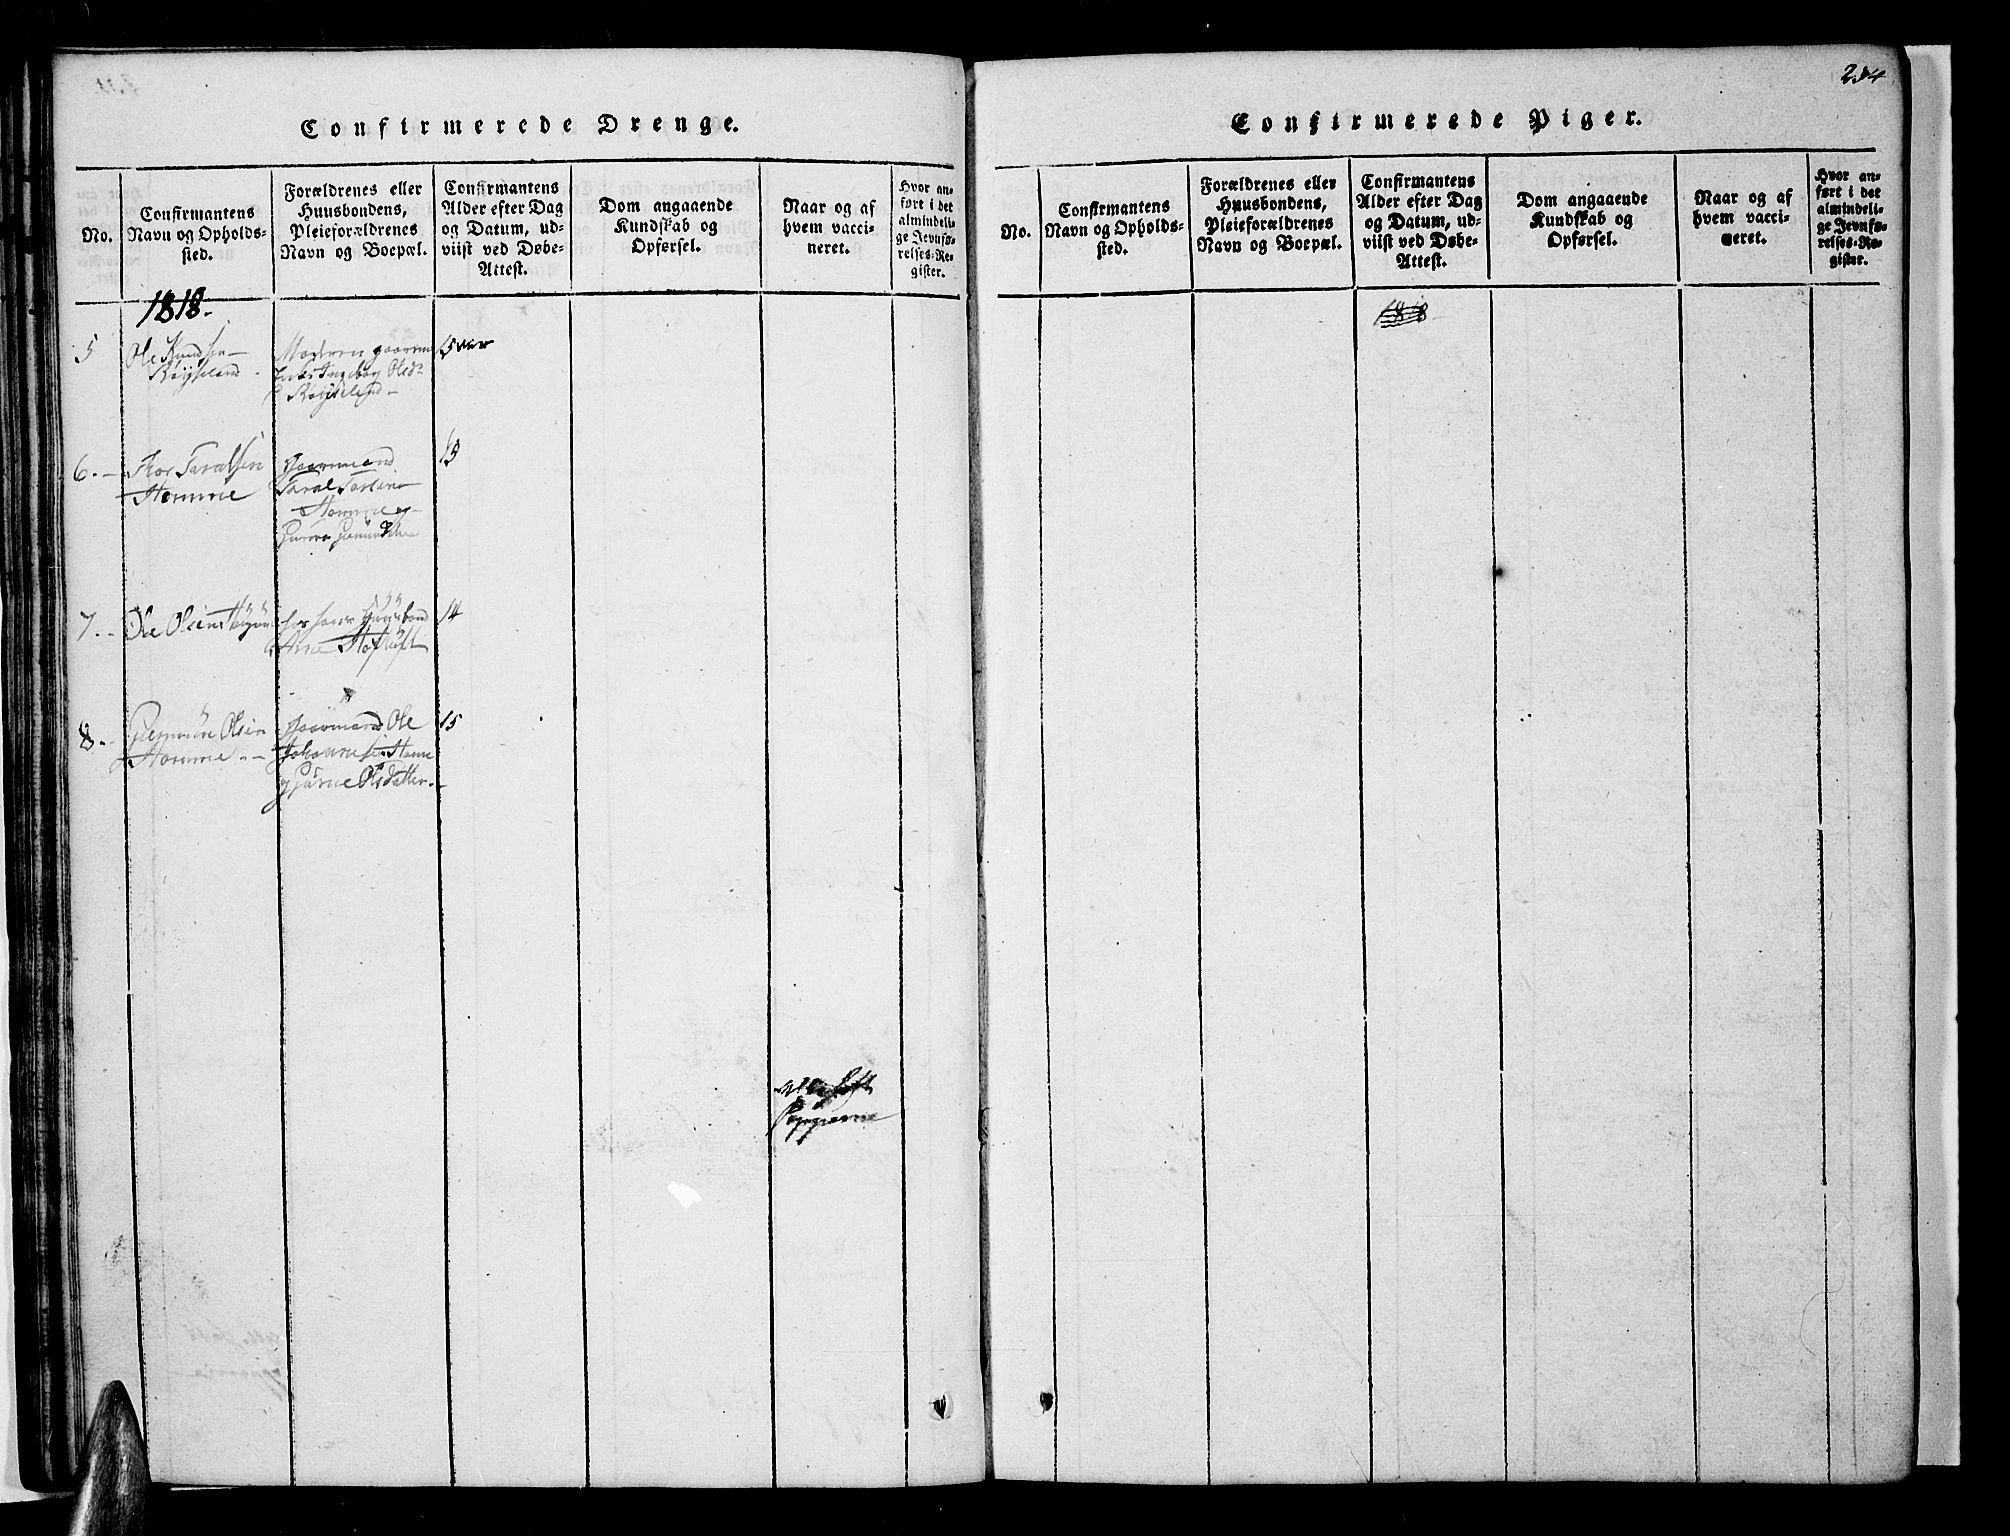 Confirmerede Drenge.
No.
Confirmantens
Navn og Opholds-
sted.
Forældrenes eller
Huusbondens,
Pleieforældrenes
Navn og Boepæl.
Confirmantens
Alder efter Dag
og Datum, ud-
viist ved Døbe-
Attest.
Dom angaaende
Kundskab og
Opførsel.
Naar og af
hvem vacci-
neret.
Hvor an-
ført i det
almindeli-
ge Jevnfø-
relses-Re-
gister.
1818.
5
Ole Knudsen
Røyseland
Moderen
Ingeborg Olsd
Røyseland
15
6.
Thor Taralsen
Homme
Gaarmand
Taral
Homme og
15
7.
Ole Olsen
Huusbond
14
8.
Olsen
Homme
Gaarmand Ole
Johannesen Homme
og Olsdatter
15
alle haft
Kopperne
234
Confirmerede Piger.
No.
Confirmantens
Navn og Opholds-
sted.
Forældrenes eller
Huusbondens,
Pleieforældrenes
Navn og Boepæl.
Confirmantens
Alder efter Dag
og Datum, ud-
viist ved Døbe-
Attest.
Dom angaaende
Kundskab og
Opførsel.
Naar og af
hvem vacci-
neret.
Hvor an-
ført i det
almindeli-
ge Jevnfø-
relses-Re-
gister.
1818